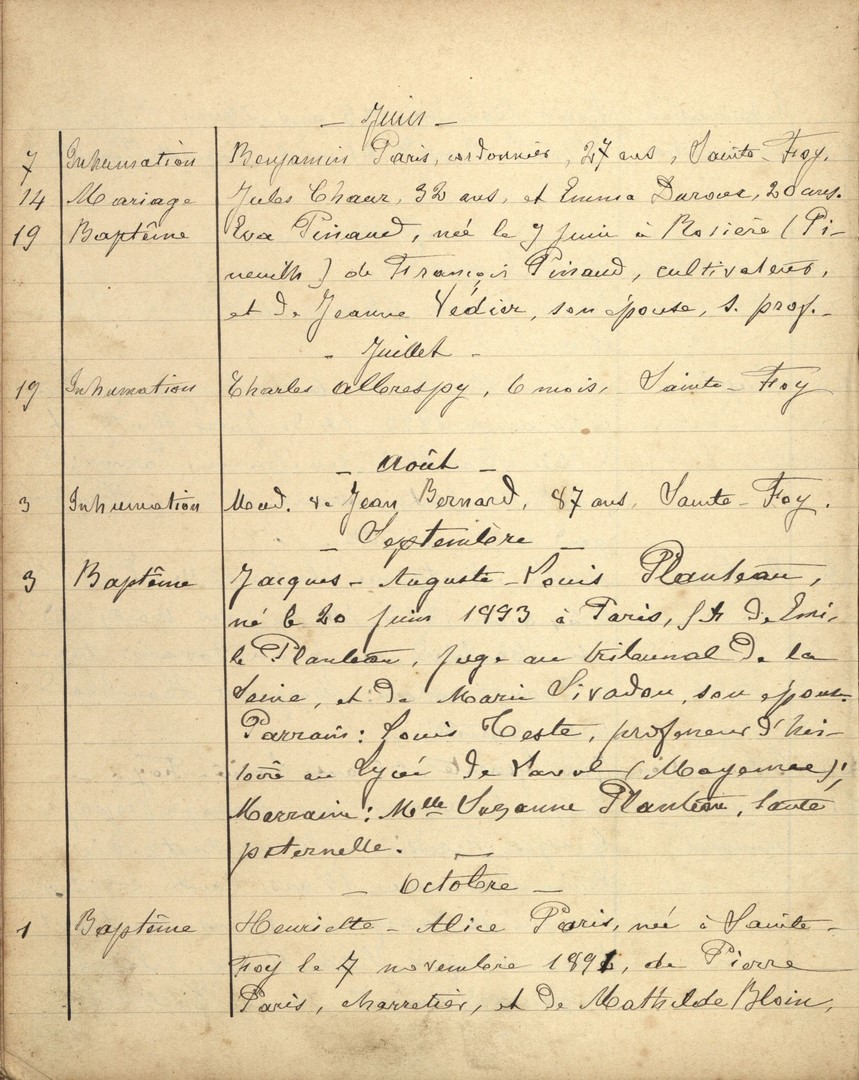 - Juin -
7 Inhumation Benjamin Paris, cordonnier, 27 ans, Sainte-Foy.
14 Mariage Jules Chaux, 32 ans, et Emma Duroux, 20 ans.
19 Baptême Eva Pinaud, née le 7 juin à Rosière (Pi-
neuilh) de François Pinaud, cultivateur,
et de Jeanne Védier, son épouse, s. prof.-
- Juillet -
19 Inhumation Charles Albrespy, 6 mois, Sainte-Foy
- Août -
3 Inhumation Mad. Jean Bernard, 87 ans, Sainte-Foy.
- Septembre -
3 Baptême Jacques-Auguste-Louis Planteau,
né le 20 juin 1893 à Paris, de Emi-
le Planteau, juge au tribunal de la
Seine, et de Marie Sivadon, son épouse.
Parrain: Louis Teste, professeur d'his-
toire au Lycée de Laval (Mayenne);
Marraine: Mlle Suzanne Planteau, tante
paternelle.
- Octobre -
1 Baptême Henriette-Alice Paris, née à Sainte-
Foy le 7 novembre 1891, de Pierre
Paris, charretier, et de Mathilde Bloin,